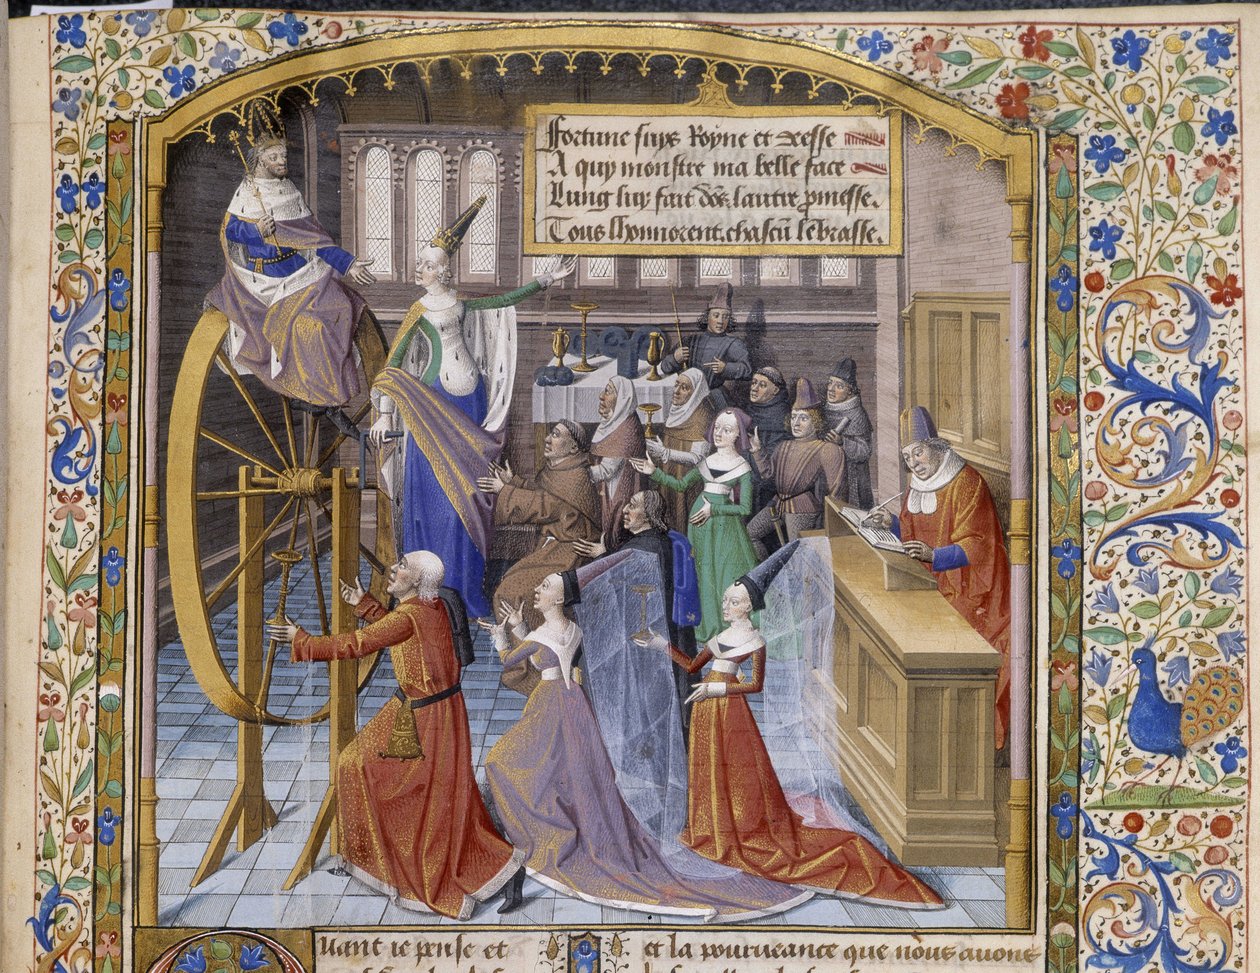 Fortune suys Royne et deesse
A quy monstre ma belle face
Lung luy fait dõs lautre p̃messe.
Tous lhonnorent, chascũ lebrasse.
uant ie pense et
et la pourueance que nous auons